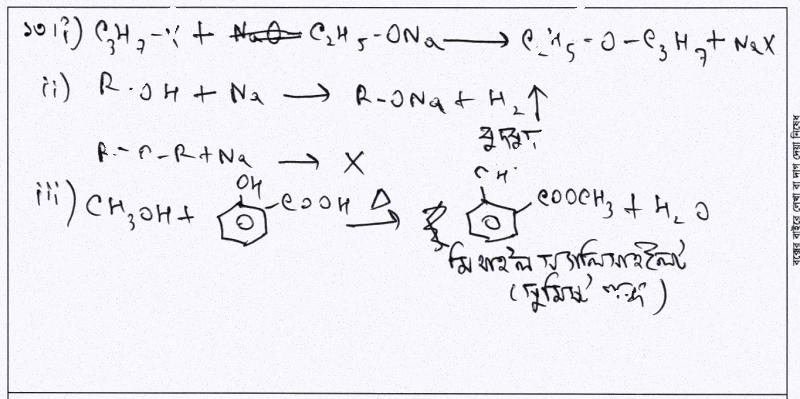 ১০। i) C₃H₇-X + C₂H₅-ONa ⟶ C₂H₅-O-C₃H₇ + NaX
ii) R-OH + Na ⟶ R-ONa + H₂↑
বুদবুদ
R-O-R + Na ⟶ X
iii) CH₃OH + OH COOH Δ ⟶ OH COOCH₃ + H₂O
মিথাইল স্যালিসাইলেট
(সুমিষ্ট গন্ধ)
বক্সের বাইরে লেখা বা দাগ দেয়া নিষেধ